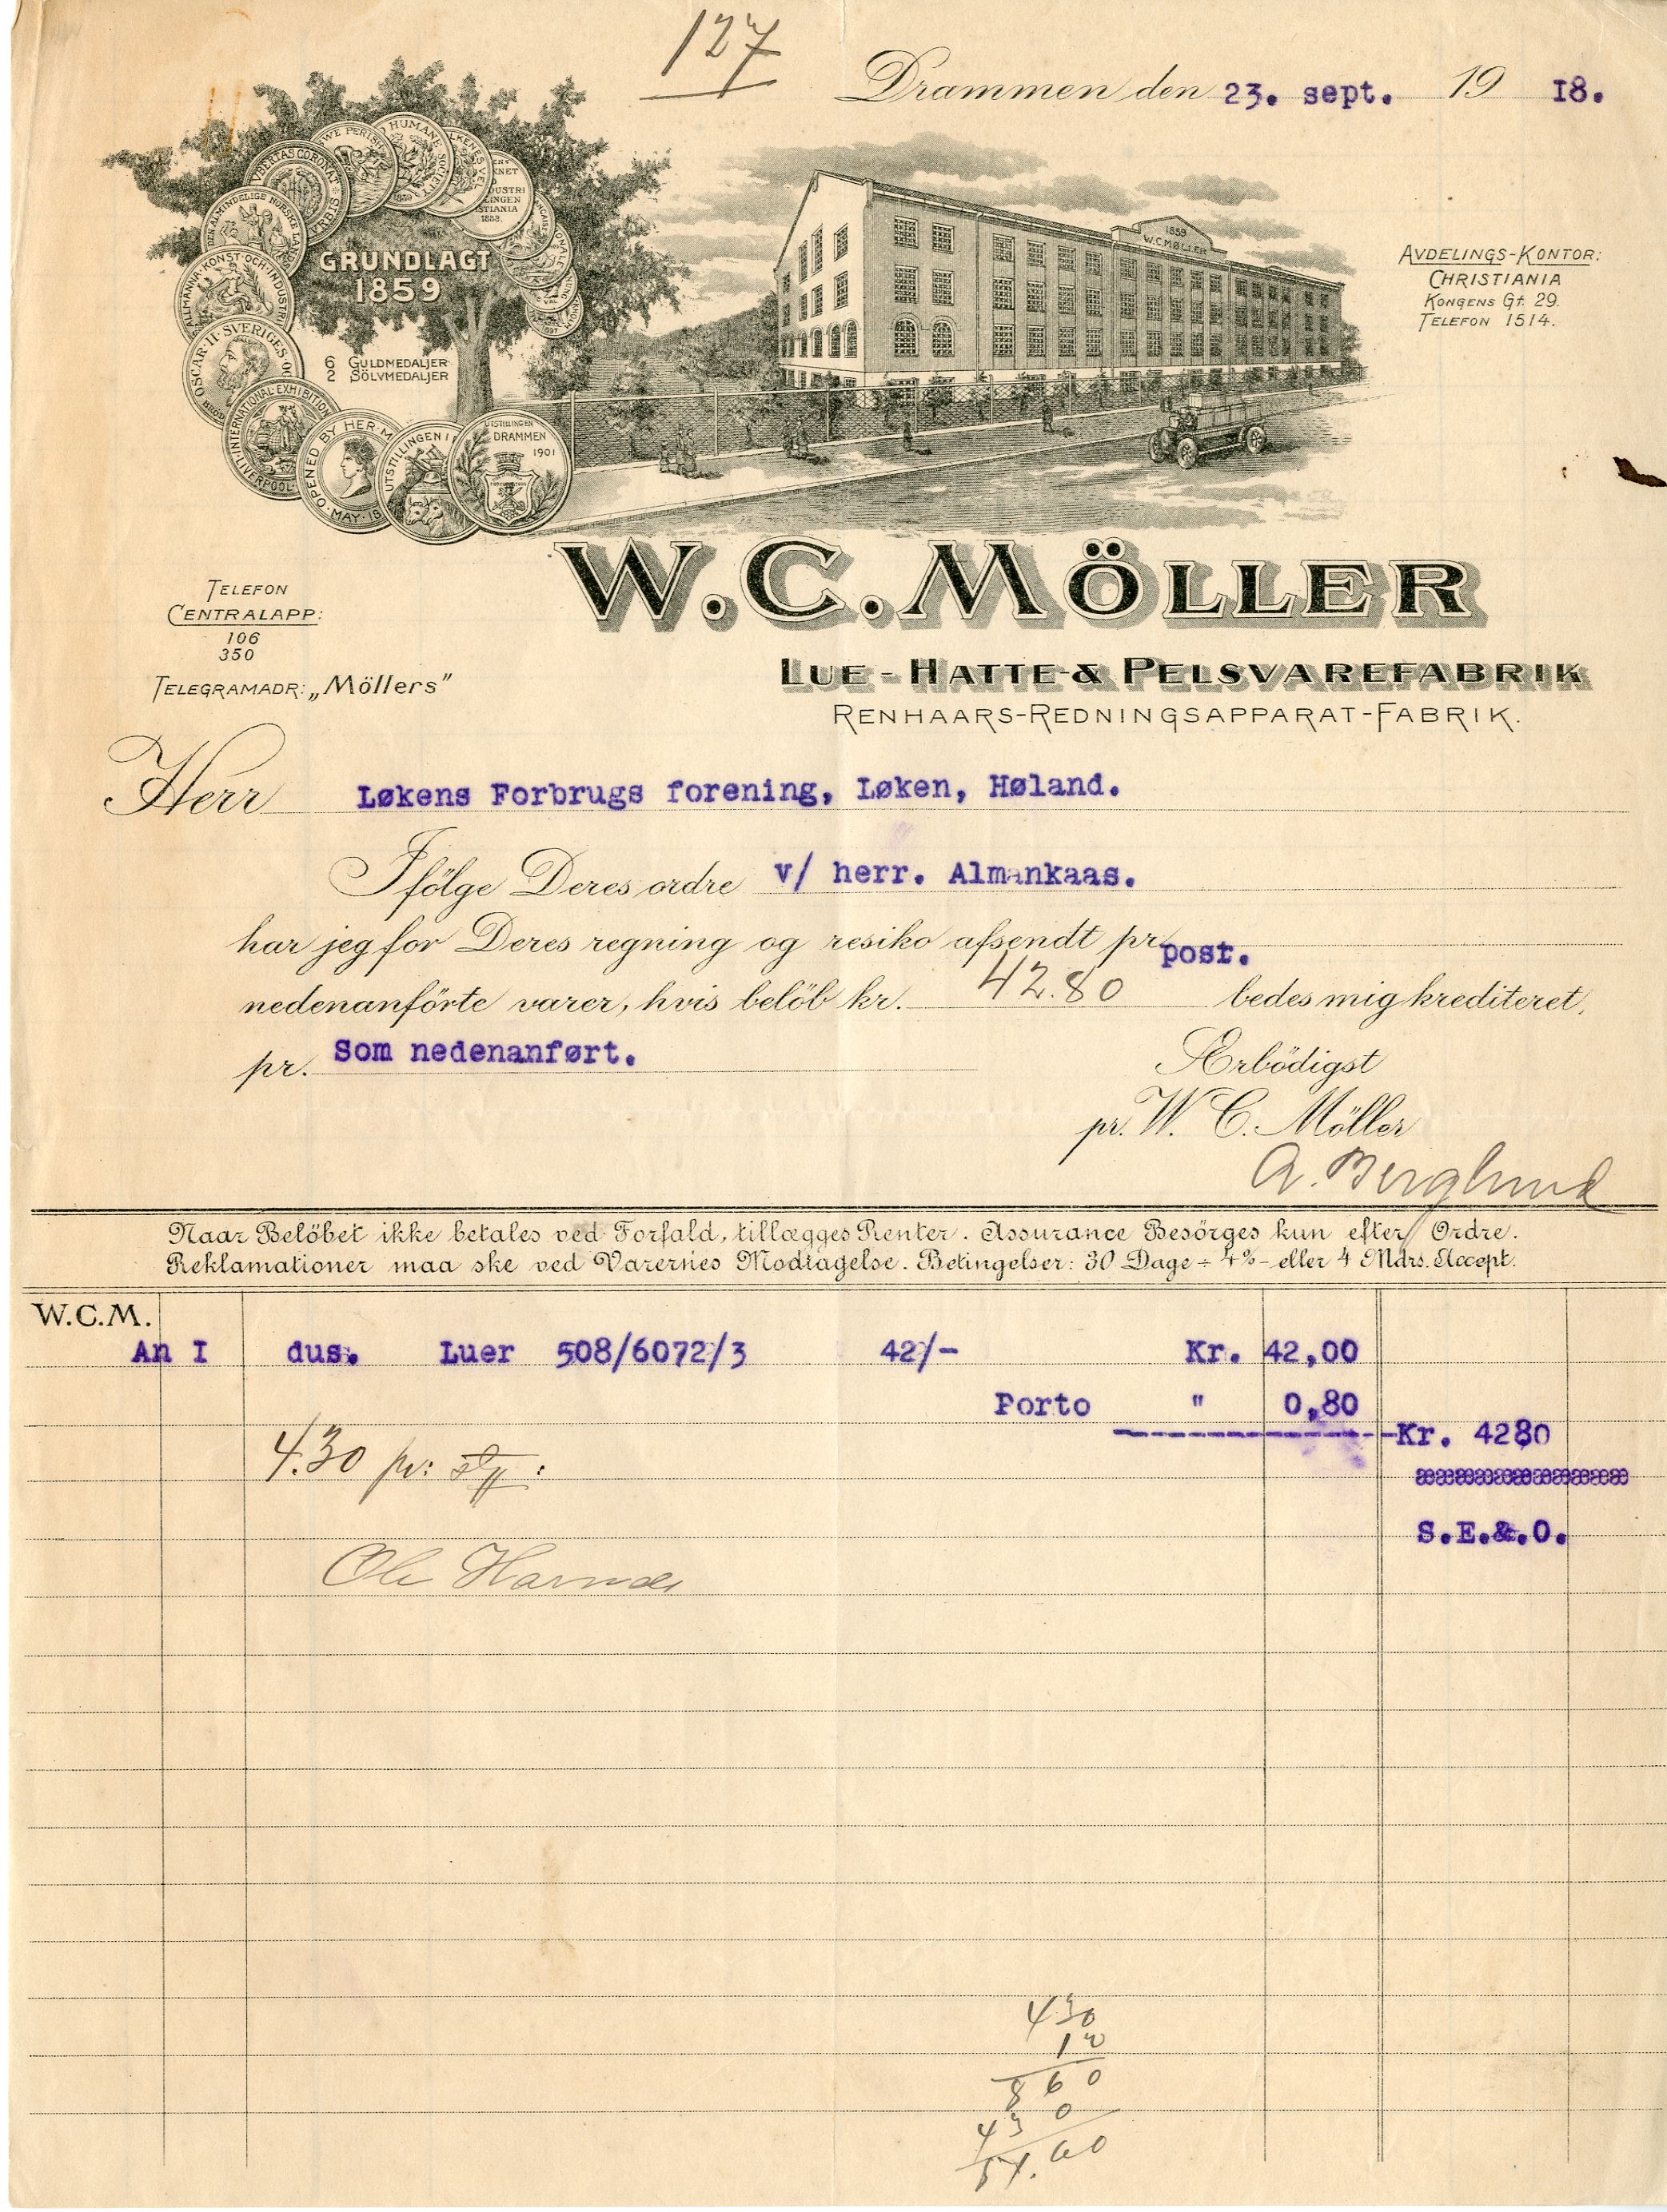 127
Drammen den 23. sept. 19 18.
GRUNDLAGT
1859
6 GULDMEDALJER
2 SÖLVMEDALJER
WE PERISH
HUMANE SOCIETY
1859
UBERTAS CORONAT
ALLMÄNNA KONST-OCH-INDUSTRI
OSCAR II SVERIGES
INTERNATIONAL EXHIBITION
OPENED BY HER M
MAY 18
UTSTILLINGEN I
UTSTILLINGEN
DRAMMEN
1901
1859
W.C.MÖLLER
AVDELINGS-KONTOR:
CHRISTIANIA
KONGENS Gt. 29.
TELEFON 1514.
W.C.MÖLLER
TELEFON
CENTRALAPP:
106
350
TELEGRAMADR: „Möllers”
LUE-HATTE-& PELSVAREFABRIK
RENHAARS-REDNINGSAPPARAT-FABRIK.
Herr Løkens Forbrugs forening, Løken, Høland.
Ifölge Deres ordre v/ herr. Almankaas.
har jeg for Deres regning og resiko afsendt pr. post.
nedenanförte varer, hvis belöb kr. 42.80 bedes mig krediteret,
pr. Som nedenanført.
Ærbödigst
pr. W. C. Möller
A. Berglund
Naar Belöbet ikke betales ved Forfald, tillægges Renter. Assurance Besörges kun efter Ordre.
Reklamationer maa ske ved Varernes Modtagelse. Betingelser: 30 Dage ÷ 4% - eller 4 Mdrs. Accept.
W.C.M.
An I dus. Luer 508/6072/3 42/- Kr. 42,00
Porto " 0,80
Kr. 4280
4.30 pr:
S.E.&.O.
Ole
430
12
860
430
51.60